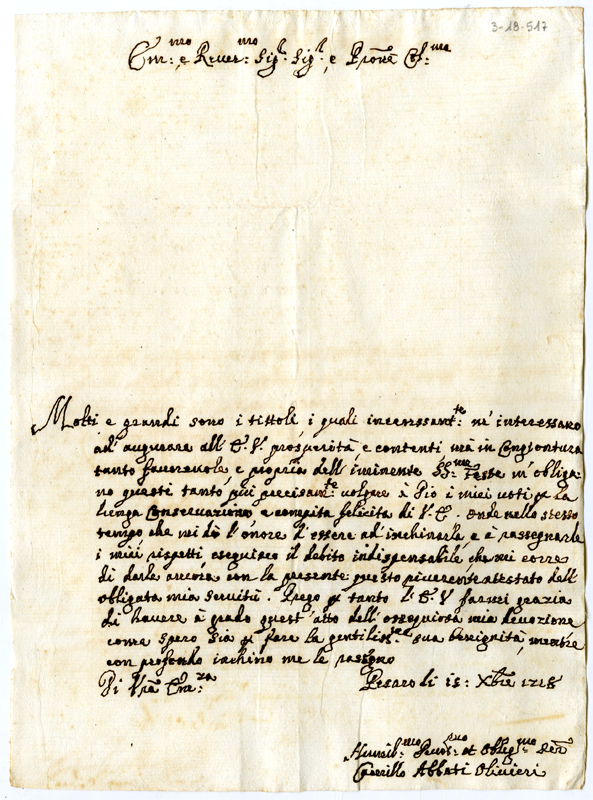 3-18-517
Em:mo e Rever:mo Sig:r Sig:r e Prone Col:mo
Molti e grandi sono i tittoli, i quali incessant:te m'interessano
ad'augurare all'E.V. prosperità, e contenti, mà in Congiontura
tanto favorevole, e propria dell'iminente SS:me Feste m'obliga-
no questi tanto più precisam:te volgere à Dio i miei voti p la
lunga Conservazione, e compita felicità di V.E. onde nello stesso
tempo che mi dò l'onore d'essere ad'inchinarla, e à rassegnarle
i miei rispetti eseguisco il debito indispensabile, che mi corre
di darle ancora con la presente questo riverente attestato dell'
obligata mia servitù. Prego p tanto l'E.V. farmi grazia
di havere à grado quest'atto dell'ossequiosa mia devozione
come spero già p fare la gentiliss:ma sua benignità, mentre
con profondo inchino me le rassegno
Di Vra Em:za
Pesaro li 15: Xbre 1718
Humil:mo Devot:mo et Oblig:mo Serre
Camillo Abbati Olivieri